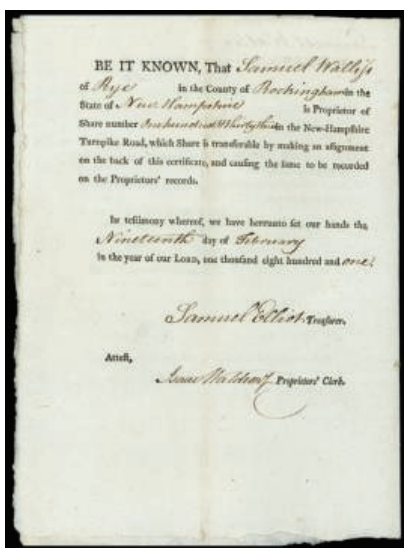 BE IT KNOWN, That Samuel Walliss
of Rye in the County of Rockingham in the
State of New Hampshire is Proprietor of
Share number One hundred & thirty three in the New-Hampshire
Turnpike Road, which Share is transferable by making an assignment
on the back of this certificate, and causing the same to be recorded
on the Proprietors' records.
In testimony whereof, we have hereunto set our hands the
Nineteenth day of February
in the year of our LORD, one thousand eight hundred and one.
Samuel Elliot, Treasurer.
Attest,
Isaac Waldron Proprietors' Clerk.